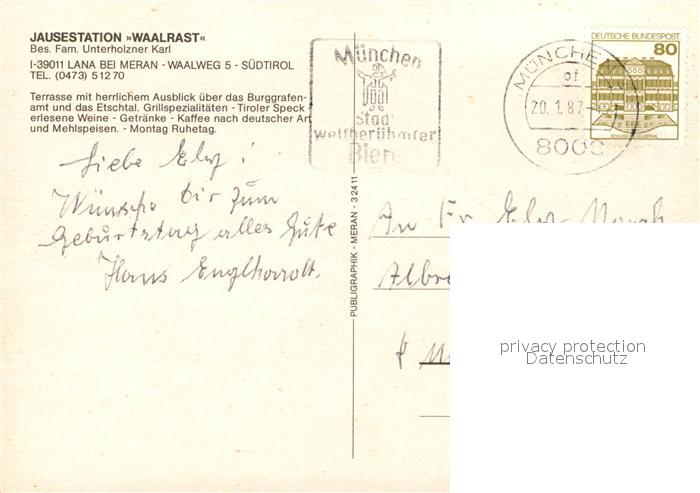 JAUSESTATION »WAALRAST«
Bes. Fam. Unterholzner Karl
I-39011 LANA BEI MERAN - WAALWEG 5 - SÜDTIROL
TEL. (0473) 51270
Terrasse mit herrlichem Ausblick über das Burggrafen-
amt und das Etschtal. Grillspezialitäten - Tiroler Speck
erlesene Weine - Getränke - Kaffee nach deutscher Art
und Mehlspeisen. - Montag Ruhetag.
Liebe Elly!
Wünsche Dir zum
Geburtstag alles Gute
Hans Englhardt.
PUBLIGRAPHIK - MERAN - 32411
München
Stadt
weltberühmter
Biere
MÜNCHEN
of
20.1.87
8000
DEUTSCHE BUNDESPOST
80
An Fr. Elly
privacy protection
Datenschutz